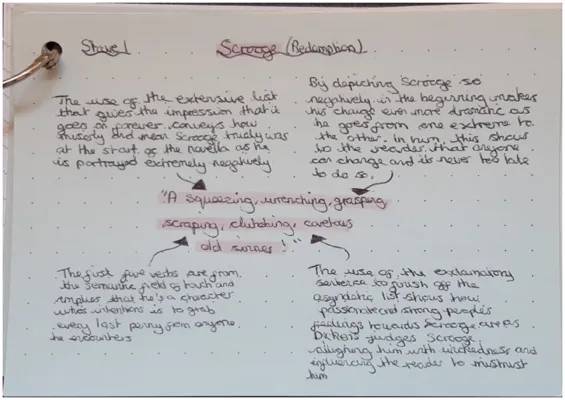 Stave 1
Scrooge (Redemption)
The use of the extensive list
that gives the impression that it
goes on forever conveys how
miserly and mean Scrooge truely was
at the start of the novella as he
is portrayed extremely negatively
By depicting Scrooge so
negatively in the beginning makes
his change even more dramatic as
he goes from one extreme to
the other. In turn, this shows
to the reader that anyone
can change and its never too late
to do so.
"A squeezing, wrenching, grasping,
scraping, clutching, covetous
old sinner!"
The first five verbs are from
the semantic field of touch and
implies that he's a character
who's intentions is to grab
every last penny from anyone
he encounters
The use of the exclamatory
sentence to finish off the
asyndetic list shows how
passionate and strong people's
feelings towards Scrooge are as
Dickens judges Scrooge,
alligning him with wickedness and
influencing the reader to mistrust
him